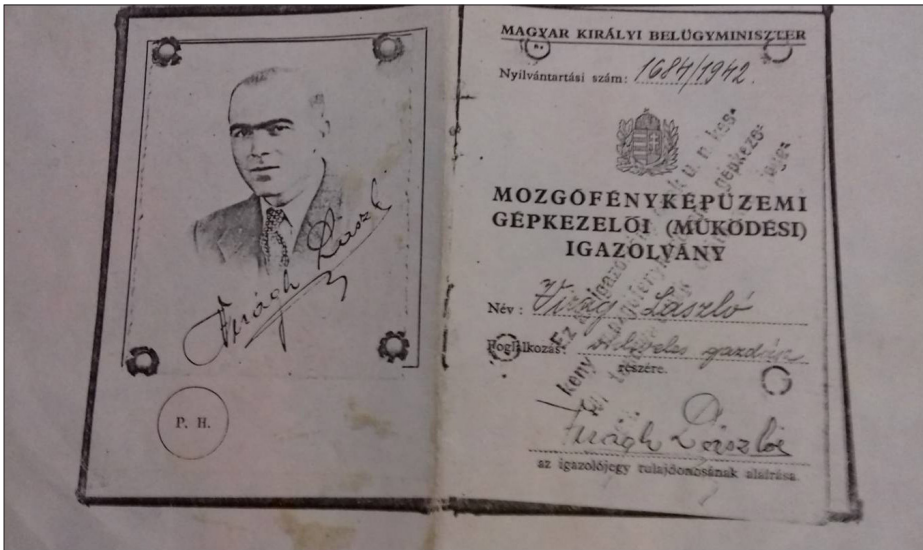 Virágh László
P. H.
MAGYAR KIRÁLYI BELÜGYMINISZTER
Nyilvántartási szám: 1684/1942.
MOZGÓFÉNYKÉPÜZEMI
GÉPKEZELŐI (MŰKÖDÉSI)
IGAZOLVÁNY
Név: Virág László
Foglalkozás: okleveles gazdász
részére.
Virágh László
az igazolójegy tulajdonosának aláírása.